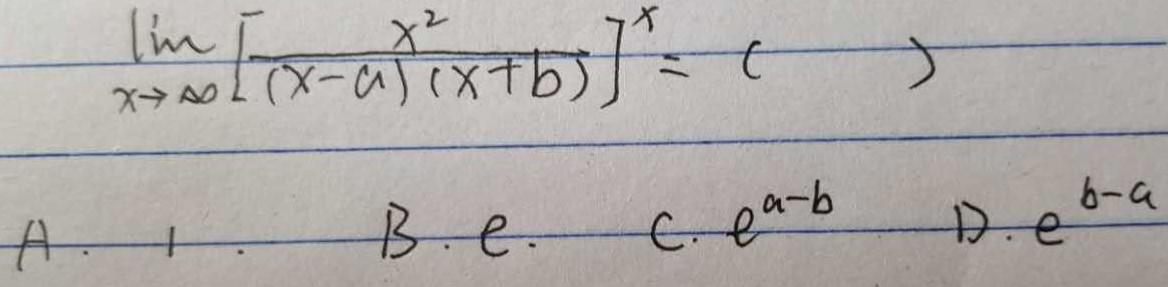 lim x→∞ [x²/((x-a)(x+b))]^x = ( )
A. 1. B. e. C. e^(a-b) D. e^(b-a)